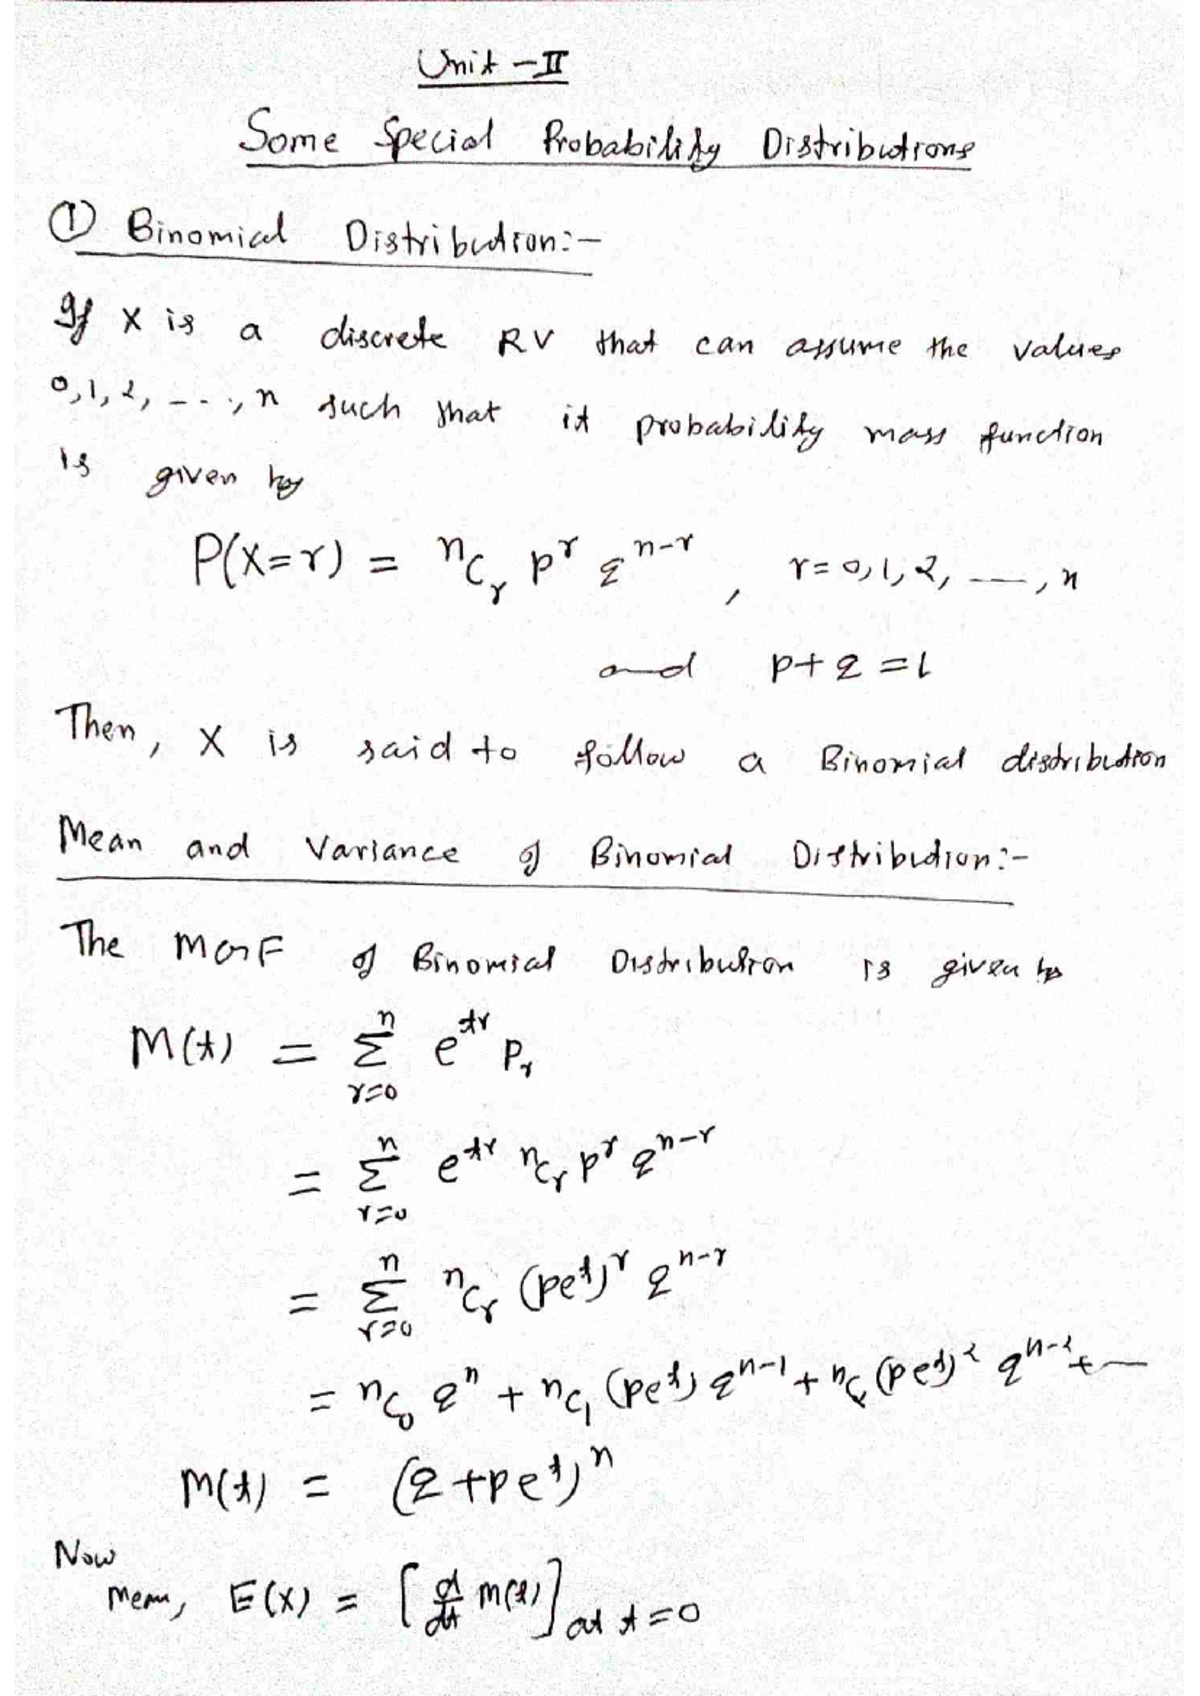 Unit - II
Some Special Probability Distributions
① Binomial Distribution:-
If X is a discrete RV that can assume the values
0, 1, 2, ---, n such that it probability mass function
is given by
P(X=r) = nCr p^r q^(n-r), r = 0, 1, 2, ---, n
and p+q = 1
Then, X is said to follow a Binomial distribution
Mean and Variance of Binomial Distribution:-
The MGF of Binomial Distribution is given by
M(t) = Σ_(r=0)^n e^(tr) P_r
= Σ_(r=0)^n e^(tr) nCr p^r q^(n-r)
= Σ_(r=0)^n nCr (pe^t)^r q^(n-r)
= nC0 q^n + nC1 (pe^t) q^(n-1) + nC2 (pe^t)^2 q^(n-2) + ---
M(t) = (q + pe^t)^n
Now
Mean, E(X) = [d/dt M(t)] at t=0